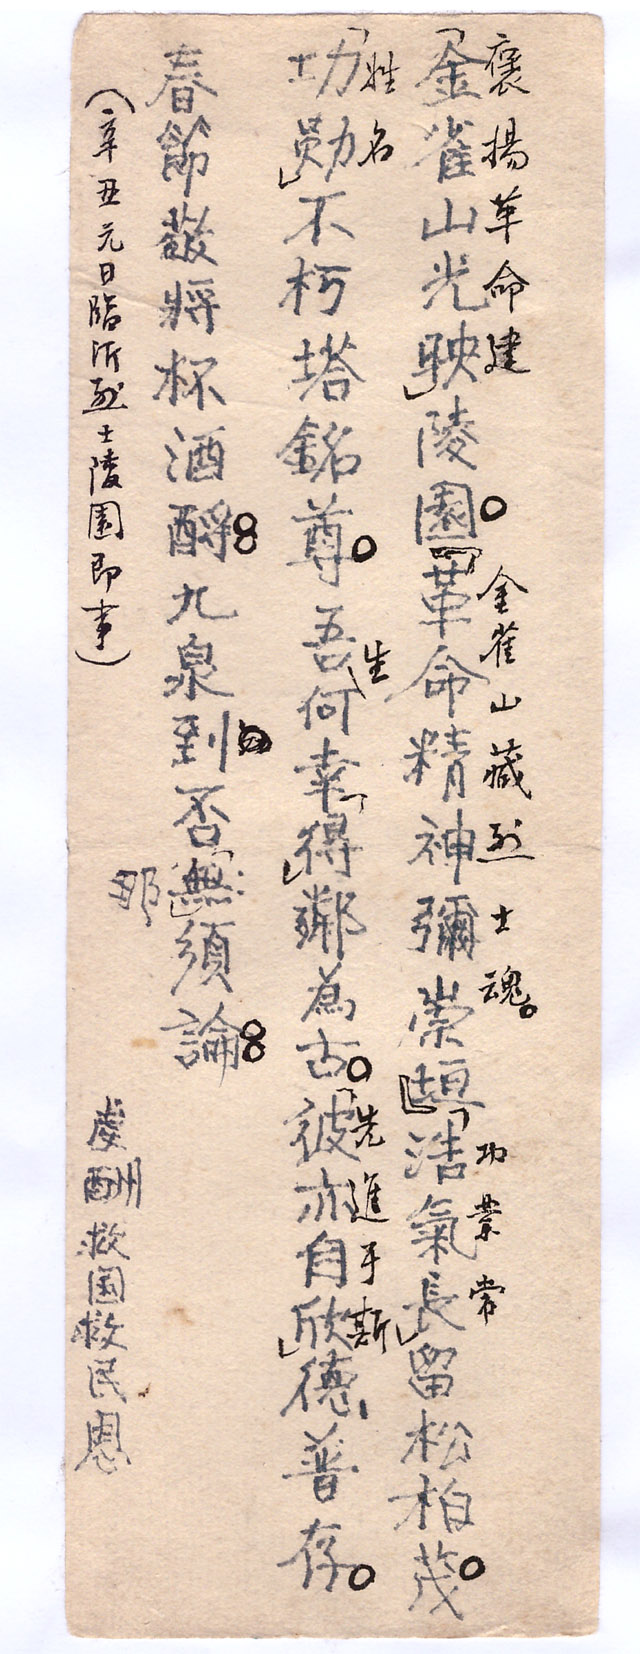 褒揚革命建 金雀山藏烈士魂。 功業常
「金雀山光映」陵園。「革命精神彌崇垣」「浩氣長」留松柏茂。
姓名 生 「先進于斯
「功勛」不朽塔銘尊。吾何幸「得」鄰為古。彼亦自欣」德善存。
春節敬將杯酒酹。九泉到否「無」須論。
那
虔酬救国救民恩
(辛丑元日臨沂烈士陵園即事)